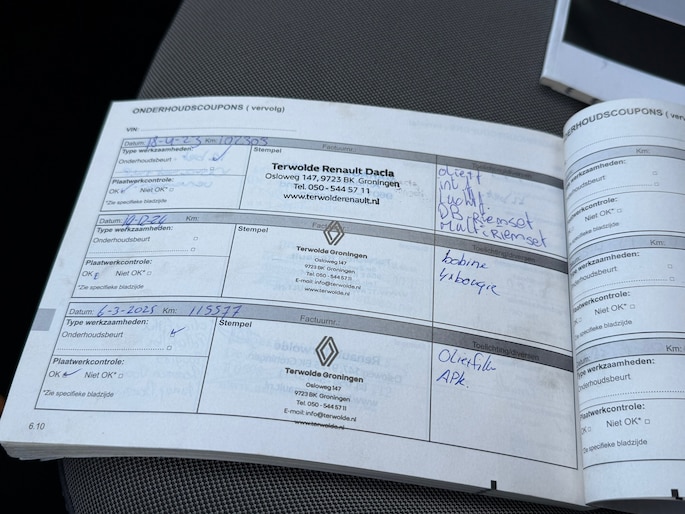 ONDERHOUDSCOUPONS ( vervolg)
VIN:
Datum: 18-4-23 Km: 102305
Type werkzaamheden:
Onderhoudsbeurt
Plaatwerkcontrole:
OK Niet OK*
*Zie specifieke bladzijde
Stempel Factuurnr.:
Terwolde Renault Dacia
Osloweg 147, 9723 BK Groningen
Tel. 050 - 544 57 11
www.terwolderenault.nl
olieff
int. f
Luchtf.
DB Riemset
Multi Riemset
Datum: Km:
Type werkzaamheden:
Onderhoudsbeurt
Plaatwerkcontrole:
OK Niet OK*
*Zie specifieke bladzijde
Stempel
Terwolde Groningen
Osloweg 147
9723 BK Groningen
Tel. 050 - 544 57 11
E-mail: info@terwolde.nl
www.terwolde.nl
Toelichting/diversen
bobine
4x bougie
Datum: 6-3-2025 Km: 115577
Type werkzaamheden:
Onderhoudsbeurt
Plaatwerkcontrole:
OK Niet OK*
*Zie specifieke bladzijde
Stempel Factuurnr.:
Terwolde Groningen
Osloweg 147
9723 BK Groningen
Tel. 050 - 544 57 11
E-mail: info@terwolde.nl
www.terwolde.nl
Toelichting/diversen
Apk.
6.10
ONDERHOUDSCOUPONS (verv
VIN:
Datum: Km:
Type werkzaamheden:
Onderhoudsbeurt
Plaatwerkcontrole:
OK Niet OK*
*Zie specifieke bladzijde
Km:
Type werkzaamheden:
Onderhoudsbeurt
Plaatwerkcontrole:
OK Niet OK*
*Zie specifieke bladzijde
Datum: Km:
Type werkzaamheden:
Onderhoudsbeurt
Plaatwerkcontrole:
OK Niet OK*
Zie specifieke bladzijde